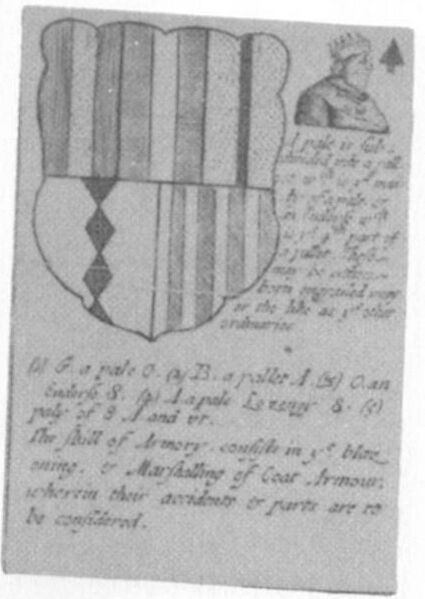 A pale is sub-
divided into a pall
et wch is ye
by of a pale, or
an Endorse wch
is ye 4th part of
a pallet. These
may be cotton
born engrailed wavy
or the like as ye other
ordinaries
(1) G. a pale O. (2) B. a pallet A. (3) O. an
Endorse S. (4) A a pale Lozengy S. (5)
paly of 8 A and vt.
The skill of Armory consists in ye blaz
oning, & Marshalling of Coat Armour,
wherein their accidents & parts are to
be considered.